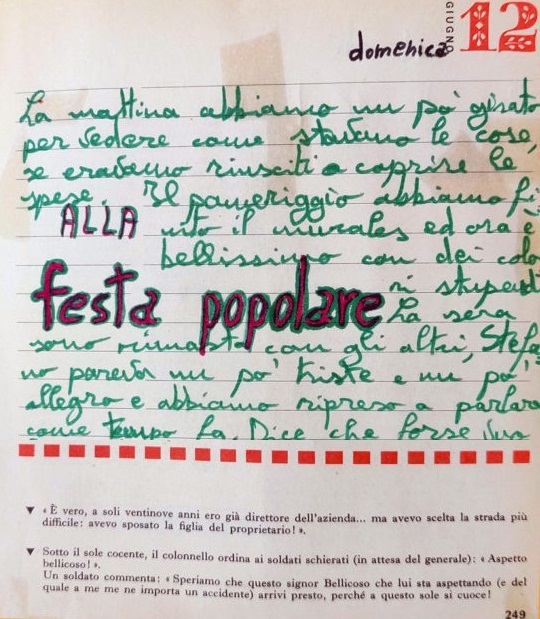 domenica
GIUGNO
12
La mattina abbiamo un pò girato
per vedere come stavamo le cose,
se eravamo riusciti a coprire le
spese. Il pomeriggio abbiamo fi
ALLA nito il murales ed ora è
bellissimo con dei colo
festa popolare ri stupendi
La sera
sono rimasto con gli altri, Stefa
no pareva un po' triste e un po'
allegro e abbiamo ripreso a parlare
come tempo fa. Dice che forse
▼ « È vero, a soli ventinove anni ero già direttore dell'azienda... ma avevo scelta la strada più
difficile: avevo sposato la figlia del proprietario! ».
▼ Sotto il sole cocente, il colonnello ordina ai soldati schierati (in attesa del generale): « Aspetto
bellicoso! ».
Un soldato commenta: « Speriamo che questo signor Bellicoso che lui sta aspettando (e del
quale a me me ne importa un accidente) arrivi presto, perché a questo sole si cuoce!
249